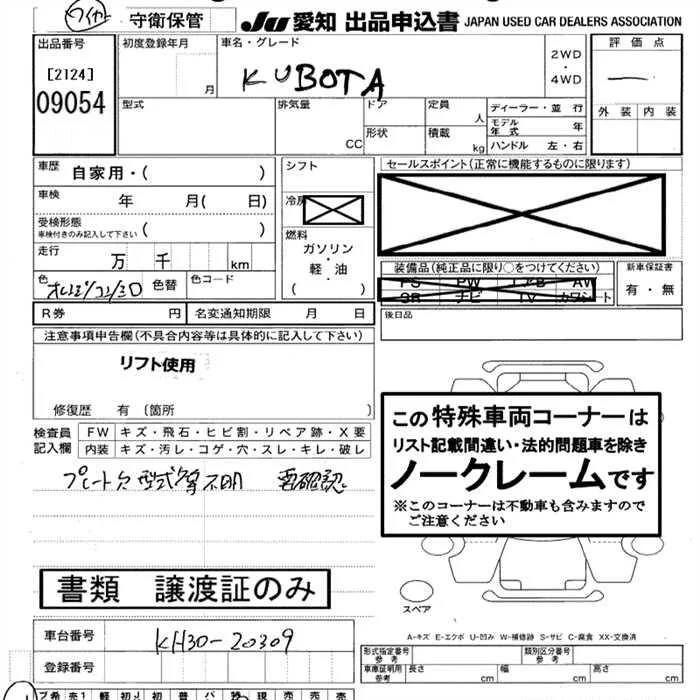 守衛保管
JU 愛知 出品申込書 JAPAN USED CAR DEALERS ASSOCIATION
出品番号
[2124]
09054
初度登録年月
月
車名・グレード
KUBOTA
2WD
・
4WD
評価点
外装 内装
型式
排気量
CC
ドア
形状
定員
人
積載
kg
ディーラー・並 行
モデル年式 年
ハンドル 左・右
車歴 自家用・( )
車検 年 月( 日)
受検形態
車検付きのみ記入して下さい ( )
走行 万 千 km
色
色替
色コード
シフト
燃料
ガソリン
・
軽・油
( )
セールスポイント(正常に機能するものに限ります)
装備品(純正品に限り○をつけてください)
新車保証書
有・無
後日品
R券 円 名変通知期限 月 日
注意事項申告欄(不具合内容等は具体的に記入して下さい)
リフト使用
修復歴 有 〔箇所 〕
検査員記入欄
FW キズ・飛石・ヒビ割・リペア跡・X要
内装 キズ・汚レ・コゲ・穴・スレ・キレ・破レ
プレート欠 型式等不明 要確認
この特殊車両コーナーは
リスト記載間違い・法的問題車を除き
ノークレームです
※このコーナーは不動車も含みますので
ご注意ください
書類 譲渡証のみ
スペア
A-キズ E-エクボ U-凹み W-補修跡 S-サビ C-腐食 XX-交換済
車台番号 KH30-20309
登録番号
型式指定番号
参考
類別区分番号
参考
車庫証明用
参考
長さ
cm
幅
cm
高さ
cm